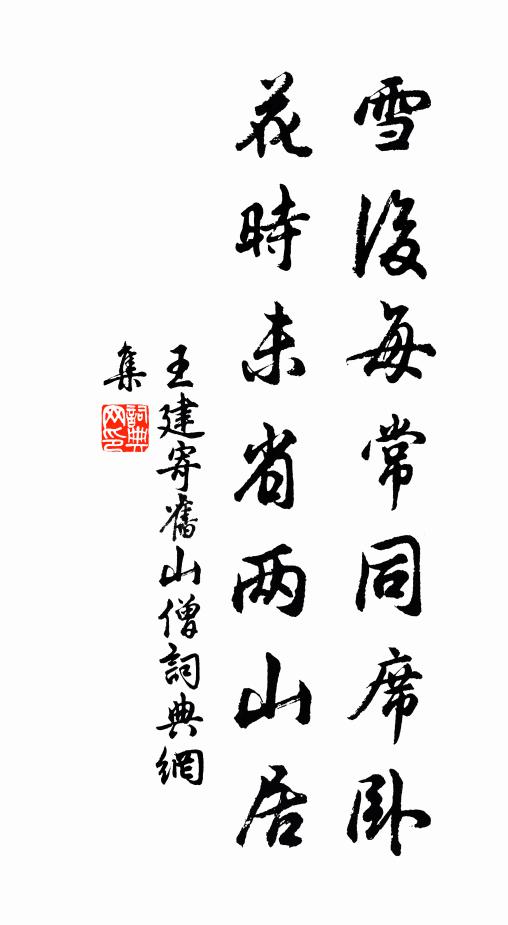 雪後每常同席卧
花時未省两山居
王建寄舊山僧詞典網
集
詞典
网印